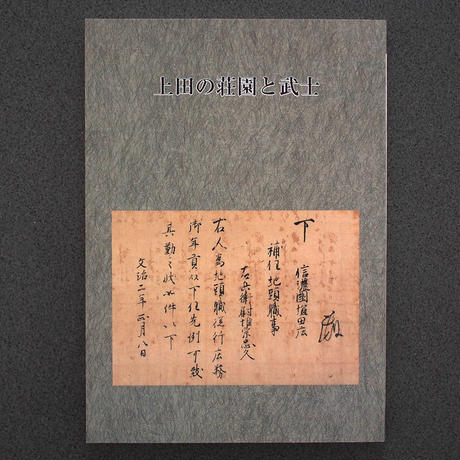 上田の荘園と武士
下 信濃國塩田庄
補任地頭職事
左兵衛尉惟宗忠久
右人為地頭職従行庄務
御年貢以下任先例可致
其勤之状如件以下
文治二年正月八日